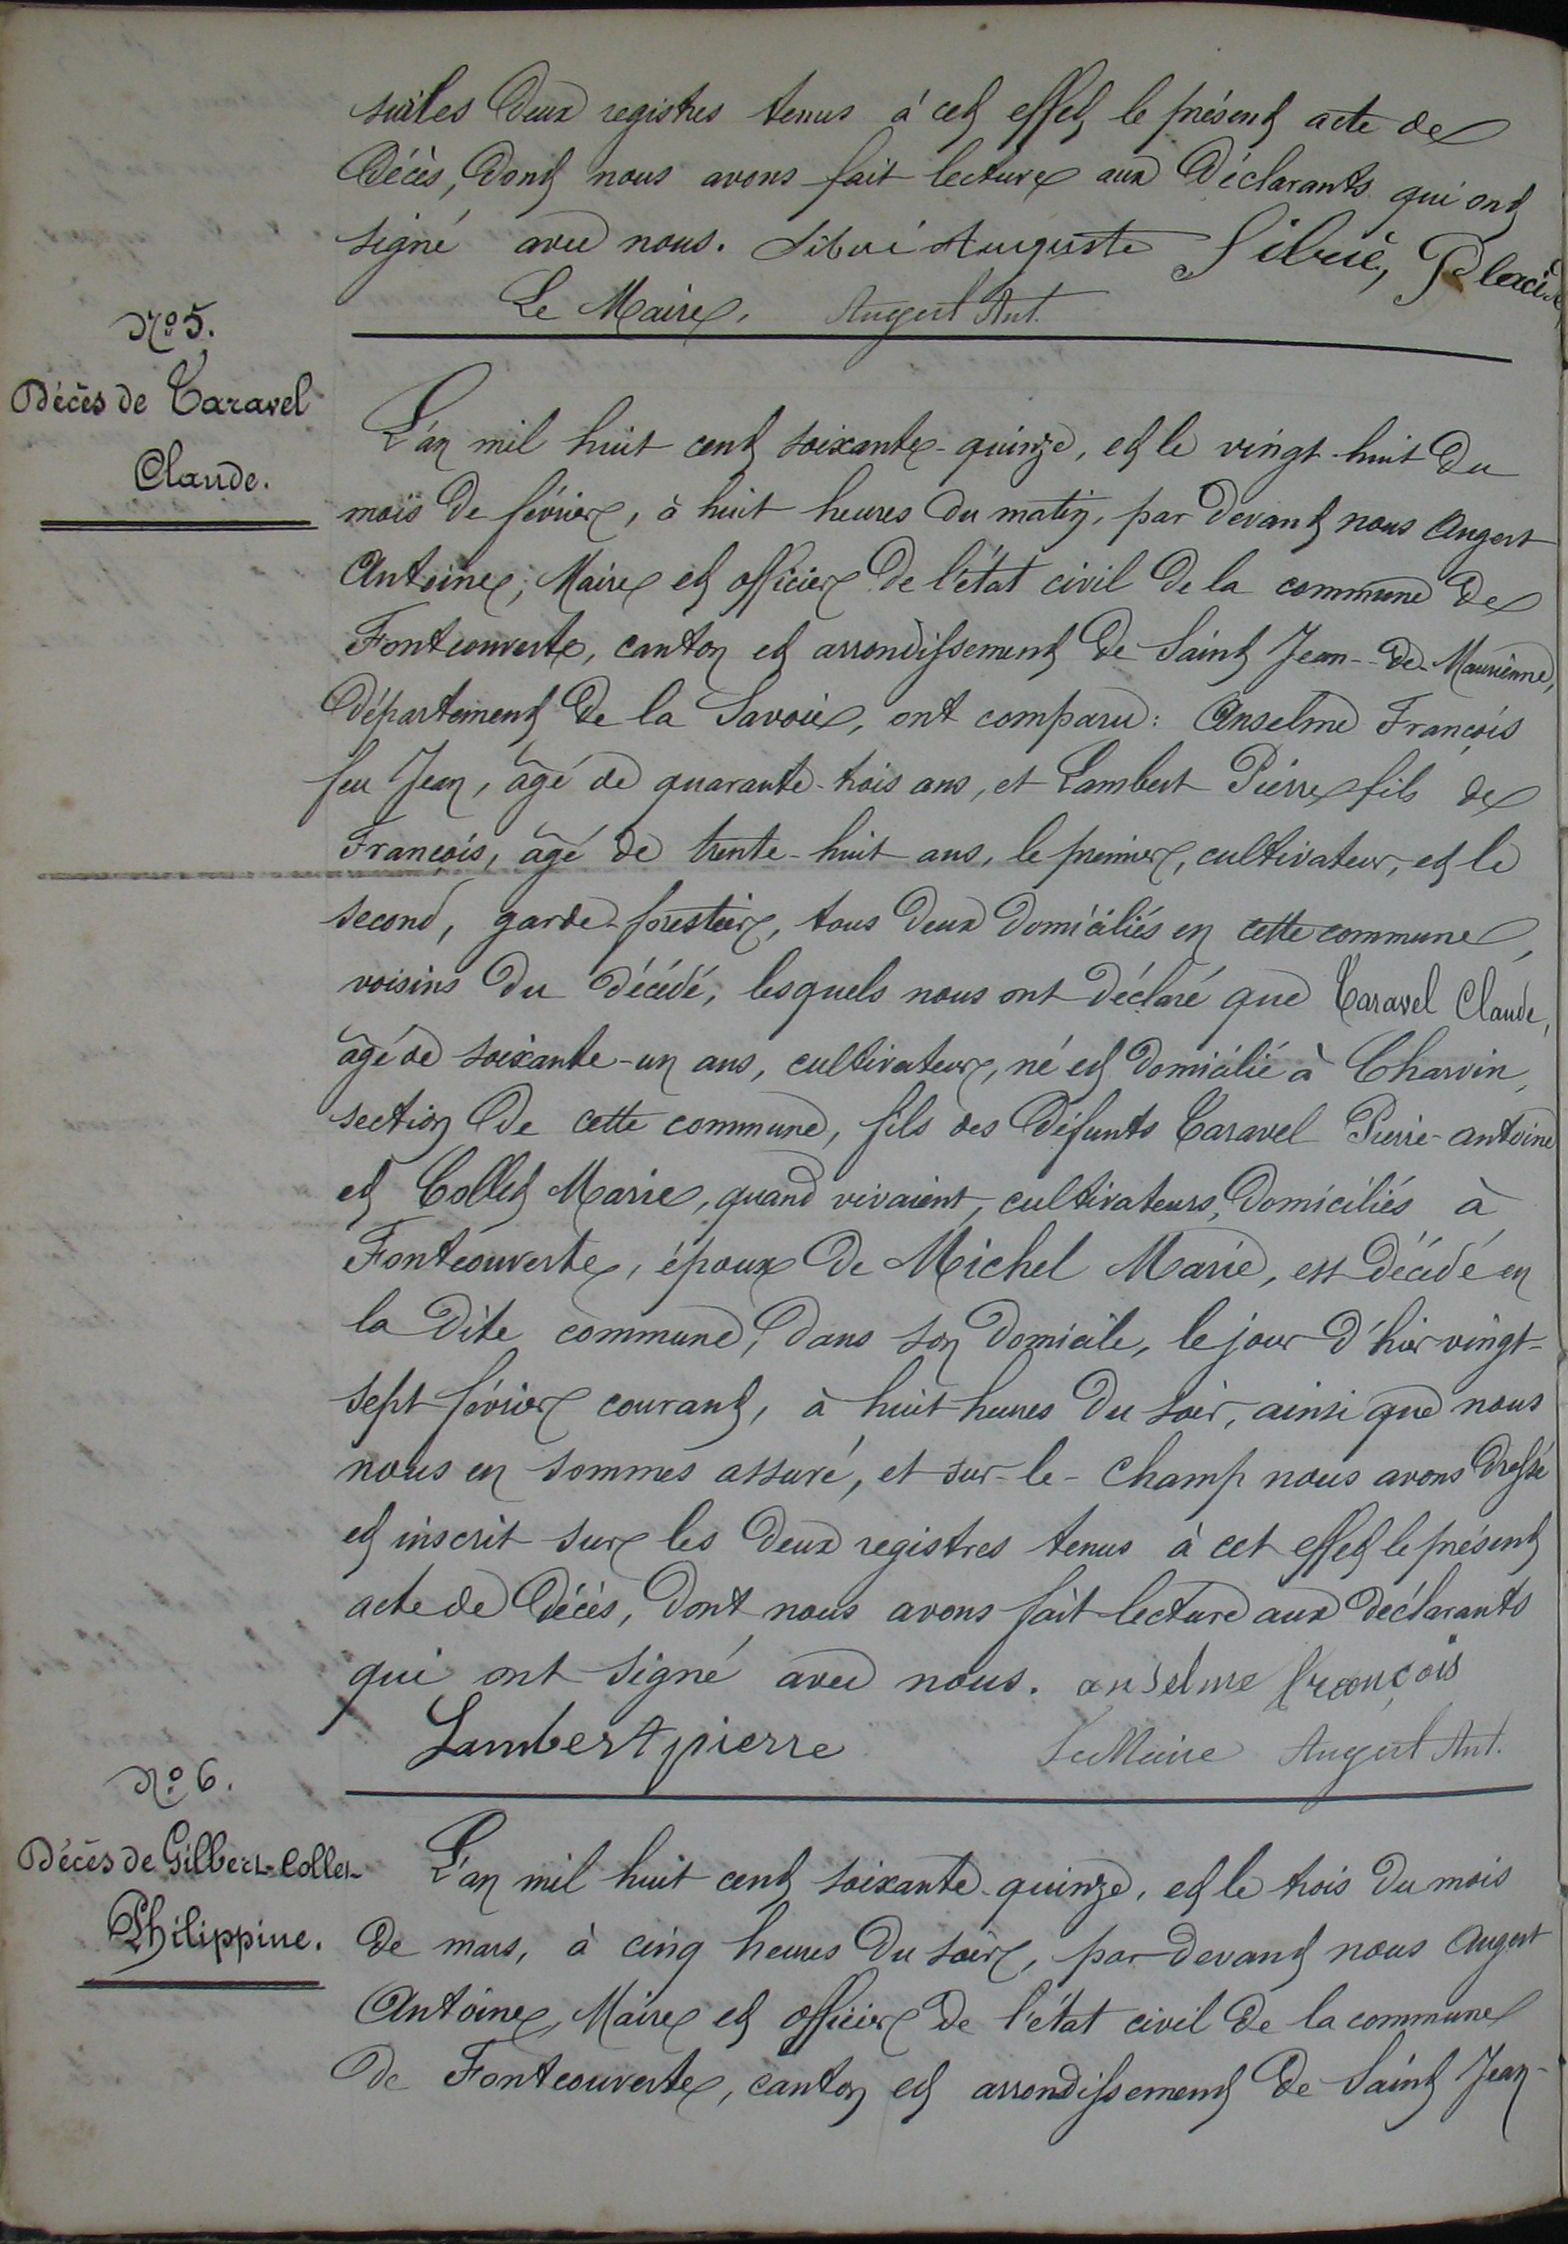 sur les deux registres tenus à cet effet le présent acte de
décès, dont nous avons fait lecture aux déclarants qui ont
signé avec nous. Sibué Auguste Sibué, Placide
Le Maire, Augert Ant.
N° 5.
Décès de Taravel
Claude.
L'an mil huit cent soixante-quinze, et le vingt-huit du
mois de février, à huit heures du matin, par devant nous Augert
Antoine, Maire et officier de l'état civil de la commune de
Fontcouverte, canton et arrondissement de Saint Jean-de-Maurienne,
département de la Savoie, ont comparu: Anselme François
feu Jean, âgé de quarante-trois ans, et Lambert Pierre fils de
François, âgé de trente-huit ans, le premier, cultivateur, et le
second, garde-forestier, tous deux domiciliés en cette commune,
voisins du décédé, lesquels nous ont déclaré que Taravel Claude,
âgé de soixante-un ans, cultivateur, né et domicilié à Charvin,
section de cette commune, fils des défunts Taravel Pierre-antoine
et Collet Marie, quand vivaient, cultivateurs, domiciliés à
Fontcouverte, époux de Michel Marie, est décédé en
la dite commune, dans son domicile, le jour d'hier vingt-
sept février courant, à huit heures du soir, ainsi que nous
nous en sommes assuré, et sur-le-champ nous avons dressé
et inscrit sur les deux registres tenus à cet effet le présent
acte de décès, dont nous avons fait lecture aux déclarants
qui ont signé avec nous. anselme françois
Lambert pierre Le Maire Augert Ant.
N° 6.
Décès de Gilbert-Collet
Philippine.
L'an mil huit cent soixante-quinze, et le trois du mois
de mars, à cinq heures du soir, par-devant nous Augert
Antoine, Maire et officier de l'état civil de la commune
de Fontcouverte, canton et arrondissement de Saint Jean-